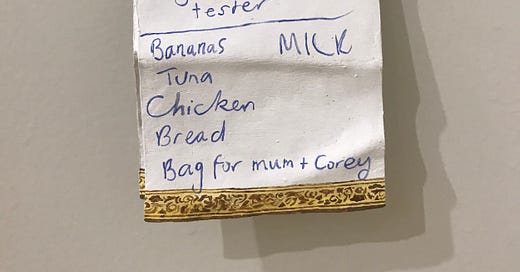 tester
Bananas MILK
Tuna
Chicken
Bread
Bag for mum + Corey